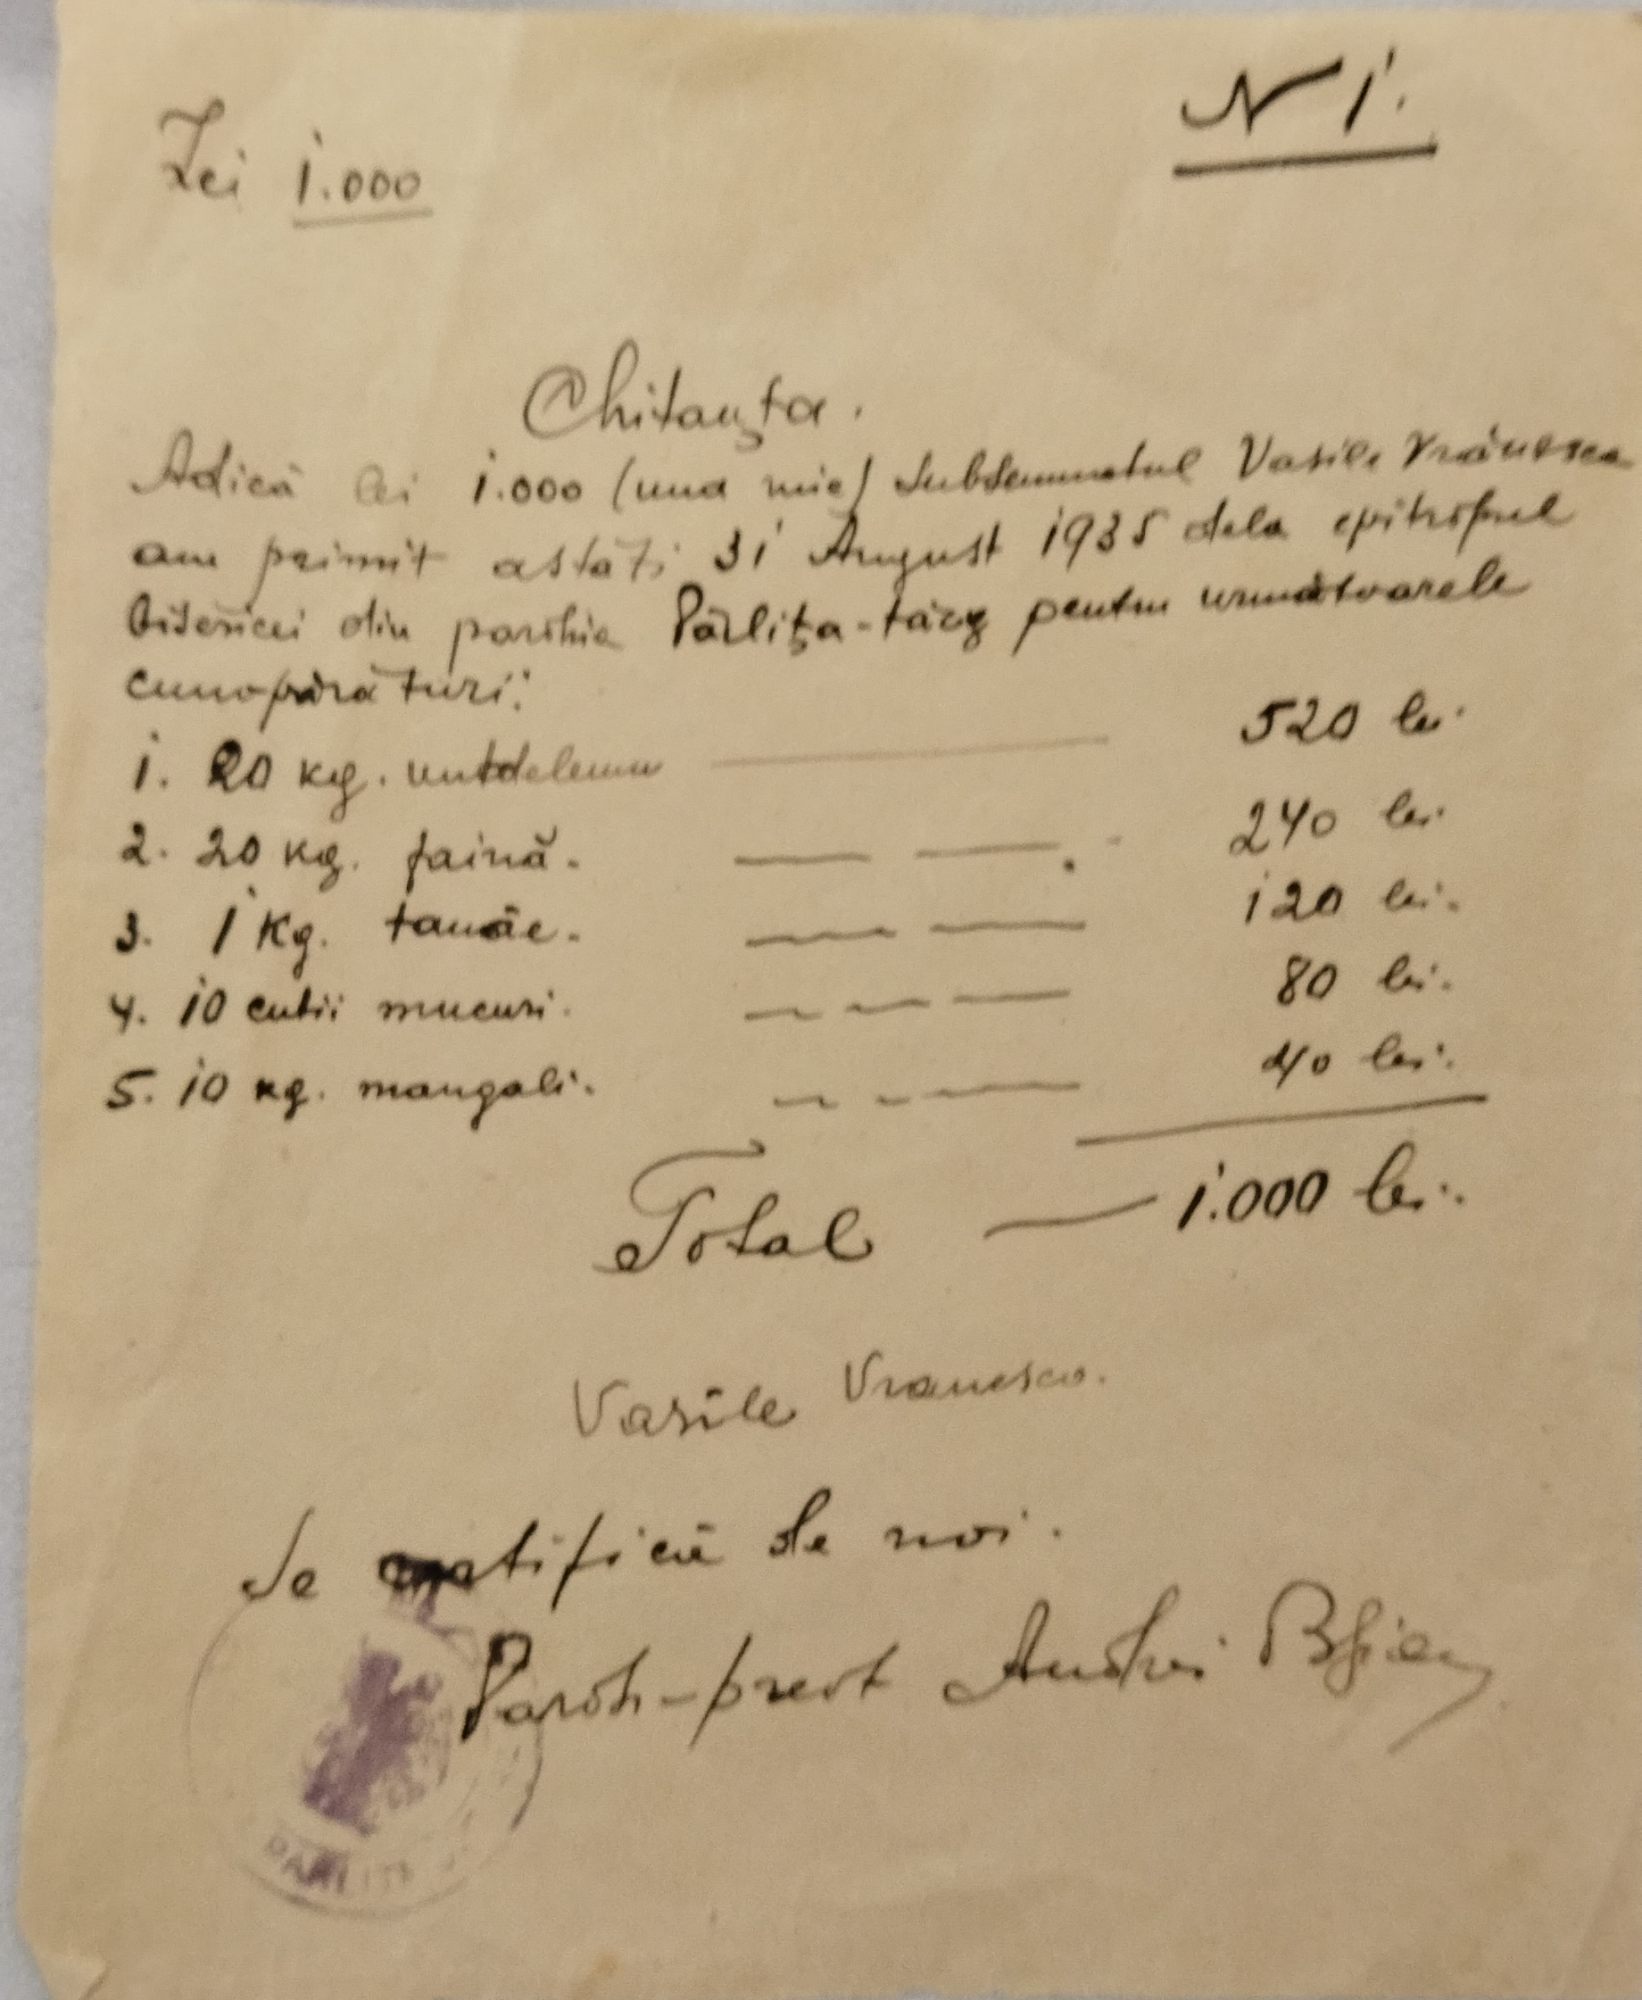 N 1.
Lei 1.000
Chitanța.
Adică lei 1.000 (una mie) subsemnatul Vasile Vrănescu
am primit astăzi 31 August 1935 dela epitropul
bisericei din parohia Pârlița-târg pentru următoarele
cumopărături:
1. 20 kg. untdelemn 520 lei.
2. 20 kg. faină. 240 lei.
3. 1 Kg. tamâe. 120 lei.
4. 10 cutii mucuri. 80 lei.
5. 10 kg. mangali. 40 lei.
Total 1.000 lei.
Vasile Vranescu.
Se ratifică de noi.
Paroh-preot Andrei